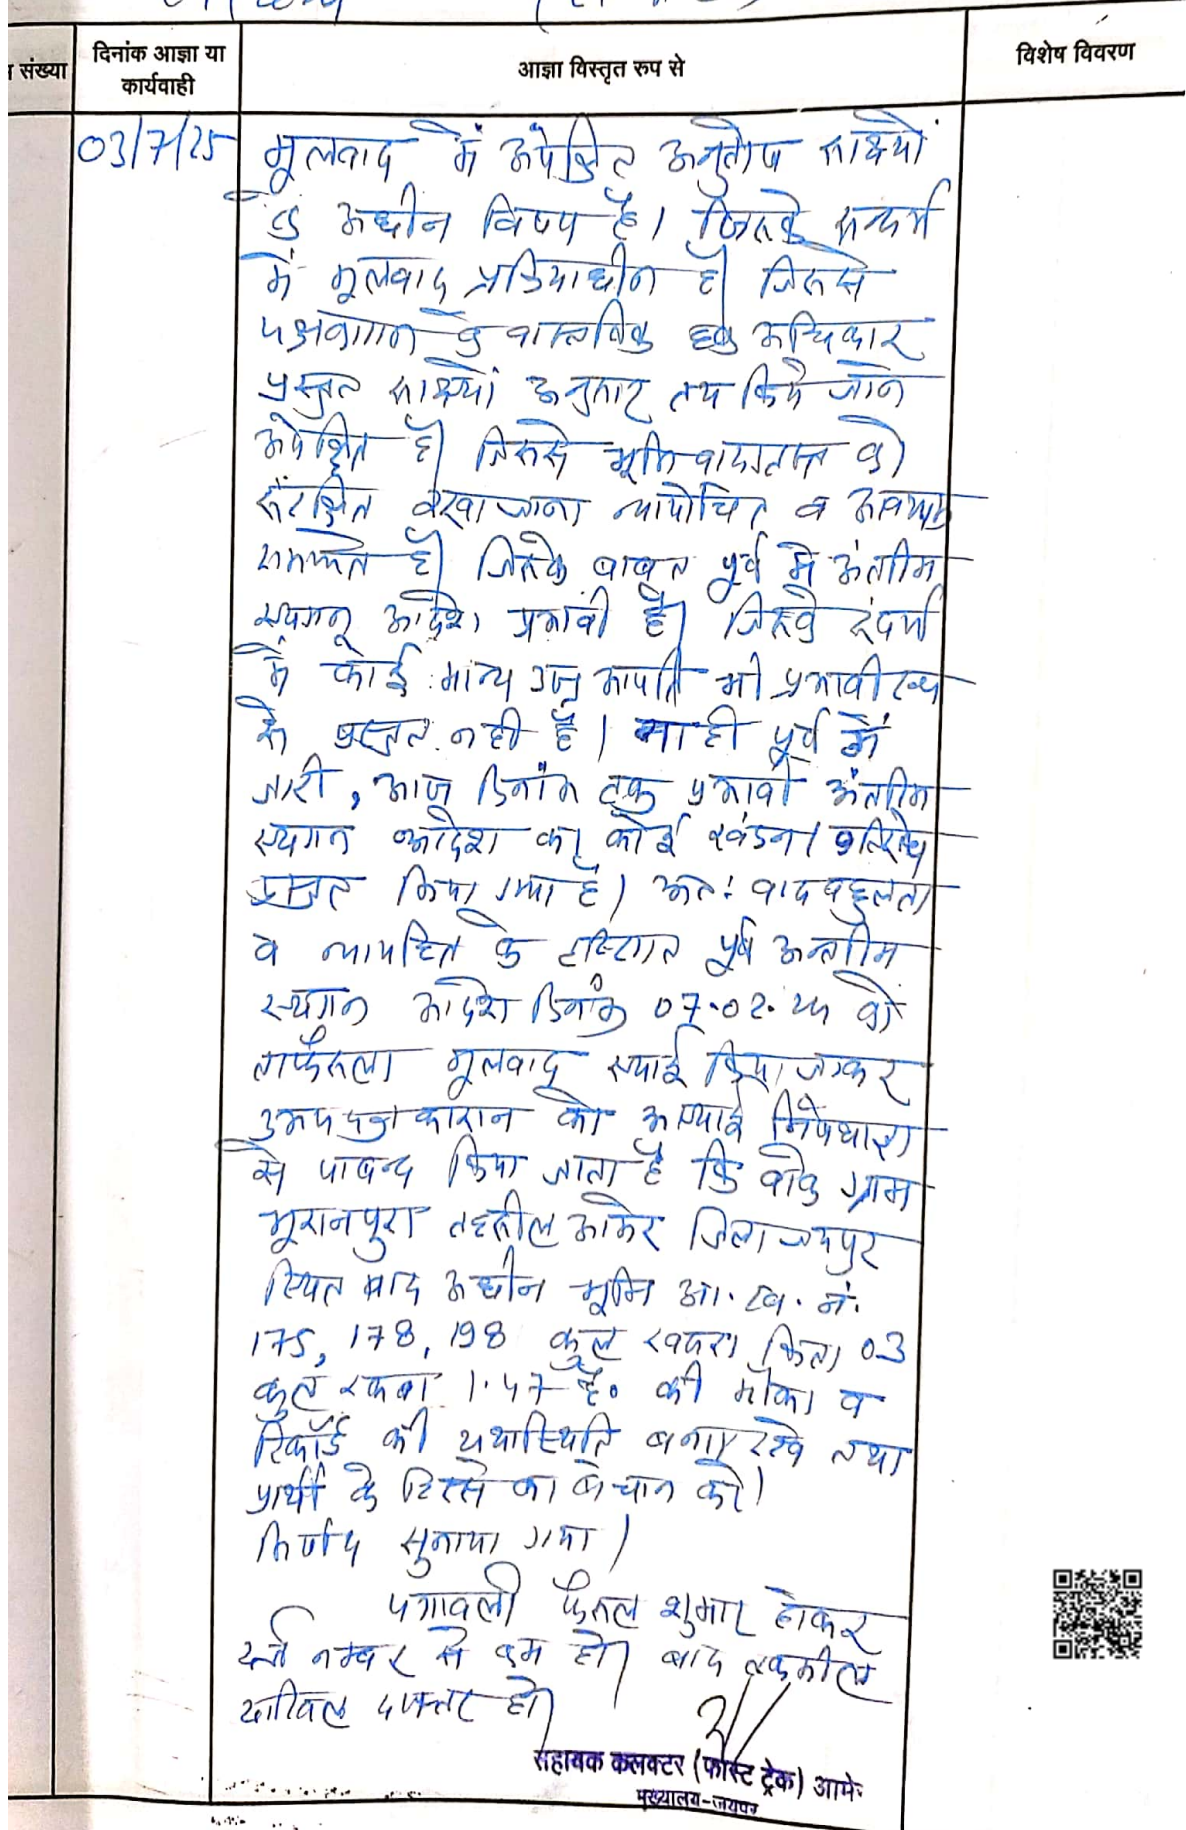 संख्या
दिनांक आज्ञा या
कार्यवाही
आज्ञा विस्तृत रुप से
विशेष विवरण
03/7/25
मूलवाद में अपेक्षित अनुतोष साक्ष्यों
के अधीन विषय है। जिसके सन्दर्भ
में मूलवाद प्रक्रियाधीन है। जिससे
पक्षकारान के वास्तविक हक अधिकार
प्रस्तुत साक्ष्यों अनुसार तय किये जाने
अपेक्षित है। जिससे भूमि वादग्रस्त को
संरक्षित रखा जाना न्यायोचित व आवश्यक
समझते है। जिसके बाबत पूर्व में अंतरीम
स्थगन आदेश प्रभावी है। जिसके संदर्भ
में कोई मान्य उज्र आपति भी प्रभावी
से प्रस्तुत नही है। ना ही पूर्व में
जारी, आज दिनांक तक प्रभावी अंतरीम
स्थगन आदेश का कोई खंडन/प्रतिरोध
प्रस्तुत किया गया है। अतः वाद बहुलता
व न्यायहित के दृष्टिगत पूर्व अन्तरीम
स्थगन आदेश दिनांक 07.02. को
ताफैसला मूलवाद स्थाई किया जाकर
उभय पक्षकारान को अस्थाई निषेधाज्ञा
से पाबन्द किया जाता है कि वाके ग्राम
भूरानपुरा तहसील आमेर जिला जयपुर
स्थित वाद अधीन भूमि आ. ख. नं.
175, 178, 198 कुल खसरा किता 03
कुल रकबा 1.47 है. की मौका व
रिकॉर्ड की यथास्थिति बनाए रखे तथा
प्रार्थी के हिस्से का बेचान करे।
निर्णय सुनाया गया।
पत्रावली फैसल शुमार होकर
दर्ज नम्बर से कम हो। बाद तकमील
दाखिल दफ्तर हो।
सहायक कलक्टर (फास्ट ट्रेक) आमेर
मुख्यालय-जयपुर